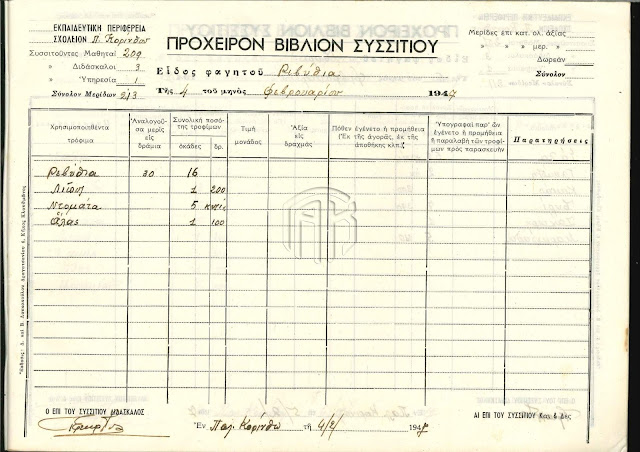 ΕΚΠΑΙΔΕΥΤΙΚΗ ΠΕΡΙΦΕΡΕΙΑ
ΣΧΟΛΕΙΟΝ Π. Κορίνθου
Συσσιτοῦντες Μαθηταί 209
» Διδάσκαλοι 3
» Ὑπηρεσία 1
Σύνολον Μερίδων 213
ΠΡΟΧΕΙΡΟΝ ΒΙΒΛΙΟΝ ΣΥΣΣΙΤΙΟΥ
Εἶδος φαγητοῦ Ρεβύθια
Τῆς 4 τοῦ μηνὸς Φεβρουαρίου 1947
Μερίδες ἐπὶ κατ. ὀλ. ἀξίας
» » » μερ. »
» Δωρεὰν
Σύνολον
Χρησιμοποιηθέντα τρόφιμα
Ἀναλογοῦσα μερὶς εἰς δράμια
Συνολικὴ ποσότης τροφίμων
ὀκάδες
δρ.
Τιμὴ μονάδος
Ἀξία εἰς δραχμάς
Πόθεν ἐγένετο ἡ προμήθεια (Ἐκ τῆς ἀγορᾶς, ἐκ τῆς ἀποθήκης κλπ.)
Ὑπογραφαὶ παρ' ὧν ἐγένετο ἡ προμήθεια ἢ παραλαβὴ τῶν τροφίμων πρὸς παρασκευὴν
Παρατηρήσεις
Ρεβύθια 30 16
1 200
Ντομάτα 5
Ἅλας 1 100
Ο ΕΠΙ ΤΟΥ ΣΥΣΣΙΤΙΟΥ ΔΙΔΑΣΚΑΛΟΣ
Ἐν Παλ. Κορίνθῳ τῇ 4/2/ 1947
ΑΙ ΕΠΙ ΤΟΥ ΣΥΣΣΙΤΙΟΥ Καὶ & Δὲς